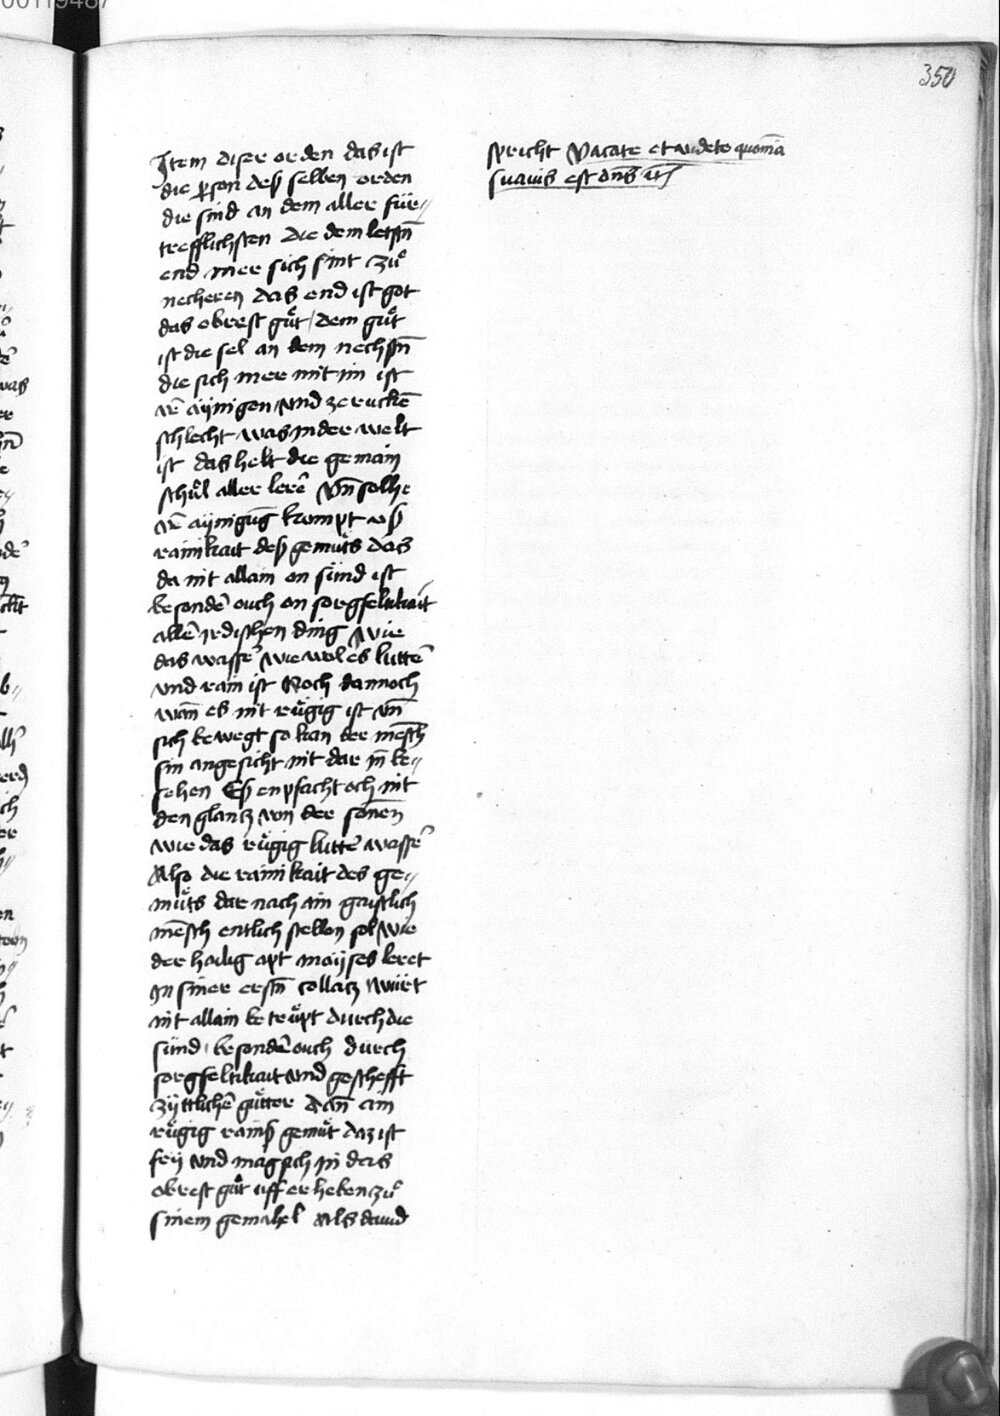 350
Item diser orden das ist
die p̱son deß selben orden
die sind an dem aller für⸗
trefflichsten die dem letstn̄
end mer sich sint zů
necheren das end ist got
das obrest gůt / dem gůt
ist die sel an dem nechstn̄
die sich mer mit im ist
v̄r aÿnigen vnd ze rucken̄
schlecht was in der welt
ist das helt die gemain
schůl aller lerē Vn̄ solhe
v̄r aÿnigūg kompt vß
rainikait deß gemůts das
da nit allain on sünd ist
besondē ouch on sorgfeltikait
allē jrdischen ding Wie
das wassē wie wol es luttē
vnd rain ist Noch dannoch
wan̄ es nit růgig ist vn̄
sich bewegt so kan der mēsch
sin angesicht nit dar in̄ be⸗
sehen Eß enpfacht och nit
den glantz von der sonēn
wie das růgig luttē wassē
Also die rainikait des ge⸗
můts dar nach ain gaistlich
mēsch entlich stellen sol Wie
der hailig apt moÿses leret
In siner erstn̄ collatz Würt
nit allain betrůpt durch die
sünd / besondē ouch durch
sorgfeltikait vnd geschefft
zÿttlichē gůtter dan̄ ain
růgig rainß gemůt daz ist
frÿ vnd mag sich in das
obrest gůt uff erheben zů
sinem gemahel Als dauid
spricht Vacate et videte quoniā
suauis est dn̄s